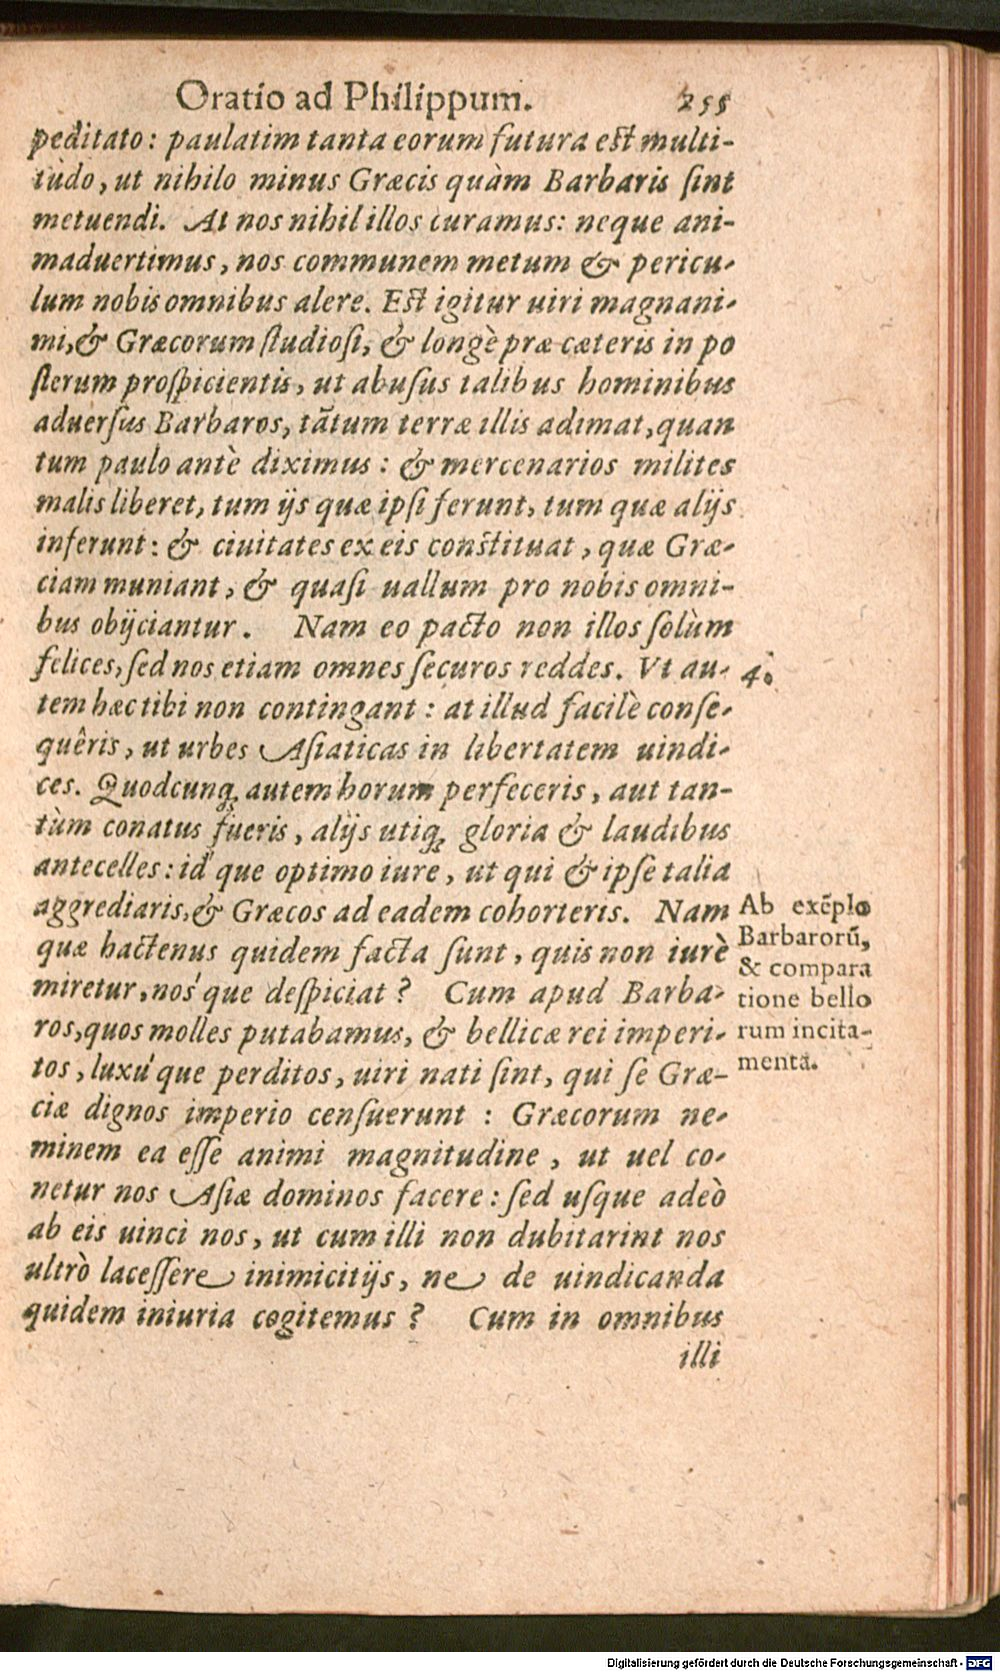 Oratio ad Philippum. 255
peditato: paulatim tanta eorum futura est multi-
tùdo, ut nihilo minus Græcis quàm Barbaris sint
metuendi. At nos nihil illos curamus: neque ani-
maduertimus, nos communem metum & pericu-
lum nobis omnibus alere. Est igitur uiri magnani-
mi, & Græcorum studiosi, & longè præ cæteris in po
sterum prospicientis, ut abusus talibus hominibus
aduersus Barbaros, tãtum terræ illis adimat, quan
tum paulo antè diximus: & mercenarios milites
malis liberet, tum ijs quæ ipsi ferunt, tum quæ alijs
inferunt: & ciuitates ex eis constituat, quæ Græ-
ciam muniant, & quasi uallum pro nobis omni-
bus obijciantur. Nam eo pacto non illos solùm
felices, sed nos etiam omnes securos reddes. Vt au-
4.
tem hæc tibi non contingant: at illud facilè conse-
quêris, ut urbes Asiaticas in libertatem uindi-
ces. Quodcunq; autem horum perfeceris, aut tan-
tùm conatus fueris, alijs utiq; gloria & laudibus
antecelles: id' que optimo iure, ut qui & ipse talia
aggrediaris, & Græcos ad eadem cohorteris. Nam
quæ hactenus quidem facta sunt, quis non iurè
miretur, nos' que despiciat? Cum apud Barba-
ros, quos molles putabamus, & bellicæ rei imperi-
tos, luxu' que perditos, uiri nati sint, qui se Græ-
ciæ dignos imperio censuerunt: Græcorum ne-
minem ea esse animi magnitudine, ut uel co-
netur nos Asiæ dominos facere: sed usque adeò
ab eis uinci nos, ut cum illi non dubitarint nos
ultrò lacessere inimicitijs, ne de uindicanda
quidem iniuria cogitemus? Cum in omnibus
illi
Ab exẽplo
Barbarorũ,
& compara
tione bello
rum incita-
menta.
Digitalisierung gefördert durch die Deutsche Forschungsgemeinschaft - DFG